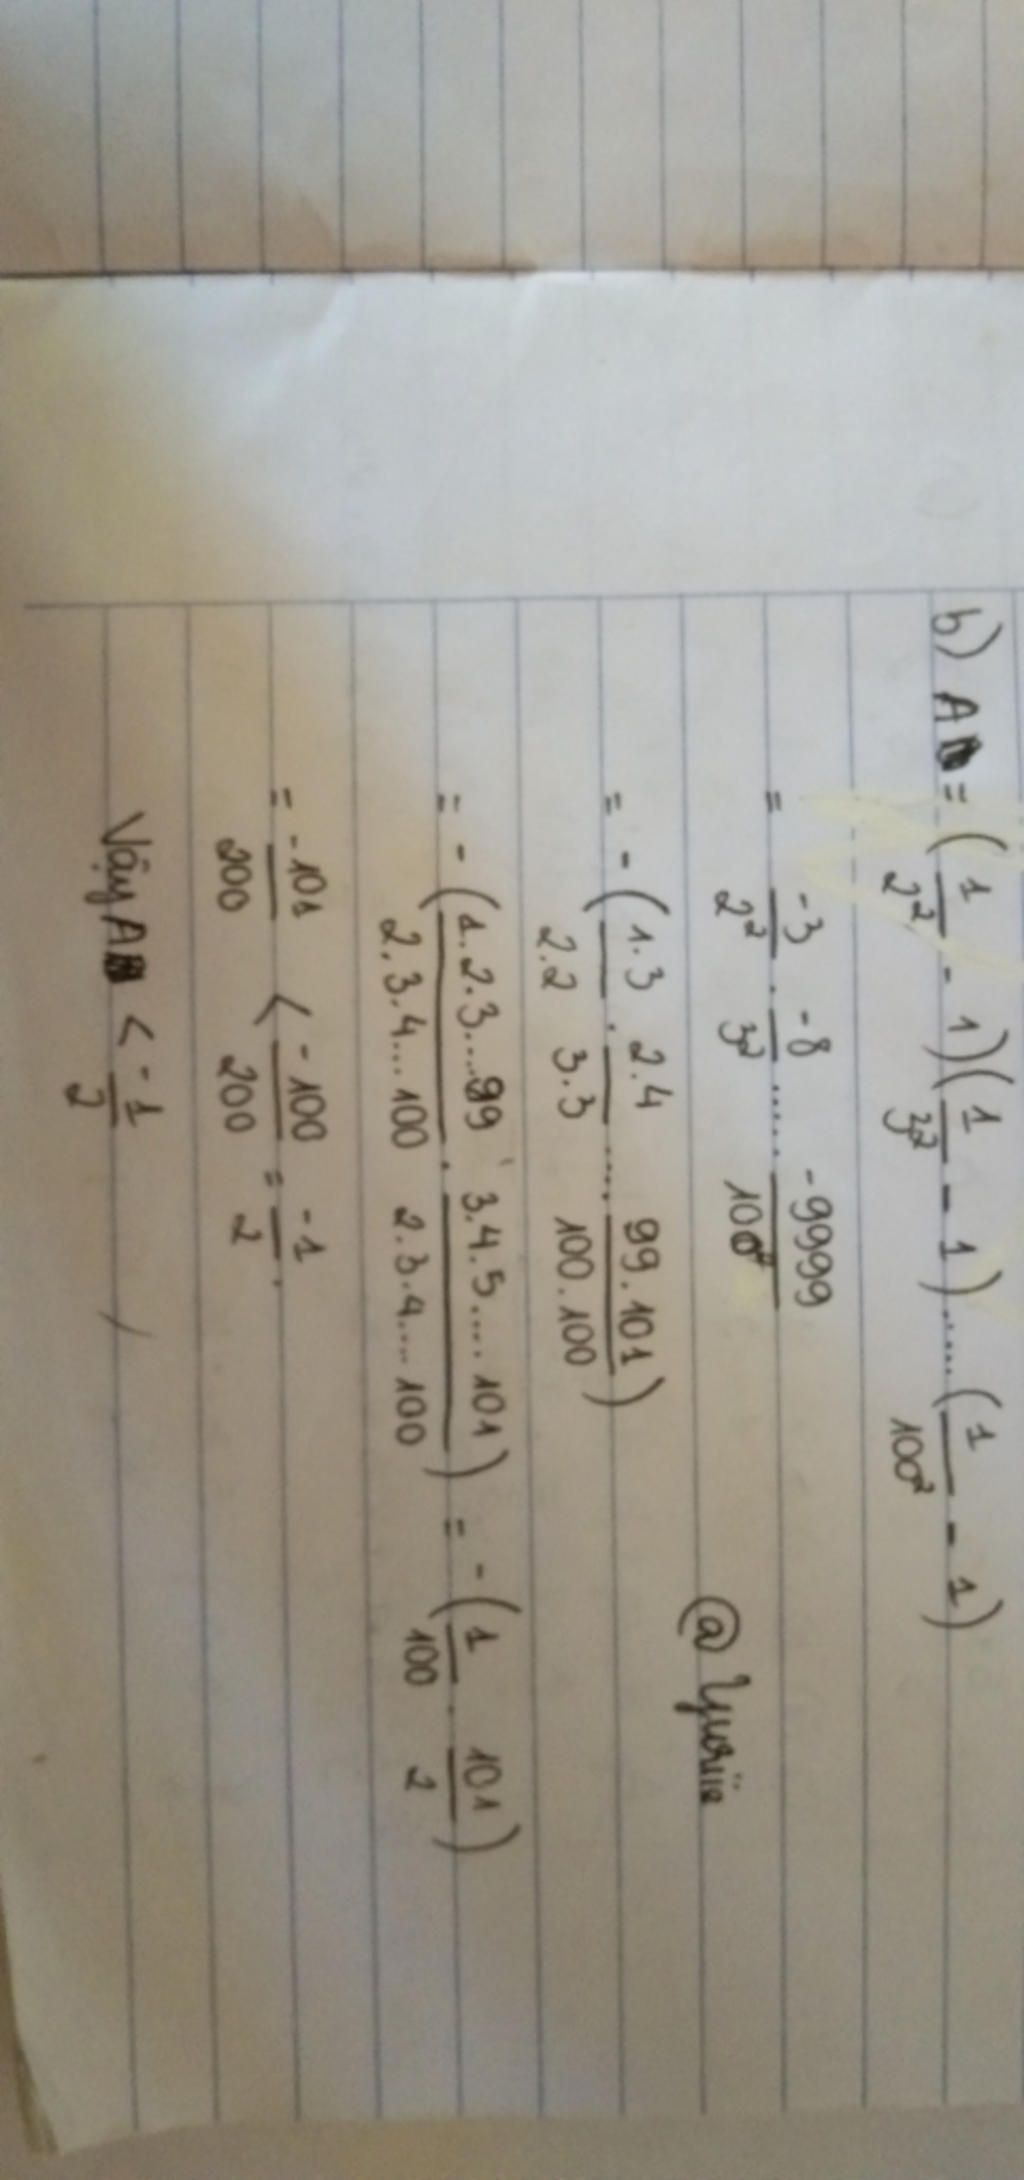 b) A = (1/2² - 1)(1/3² - 1)......(1/100² - 1)
= -3/2² . -8/3² ...... -9999/100²
@Yuriie
= - (1.3/2.2 . 2.4/3.3 ..... 99.101/100.100)
= - (1.2.3....99/2.3.4...100 . 3.4.5.... 101/2.3.4.... 100) = - (1/100 . 101/2)
= -101/200 < -100/200 = -1/2.
Vậy A < -1/2